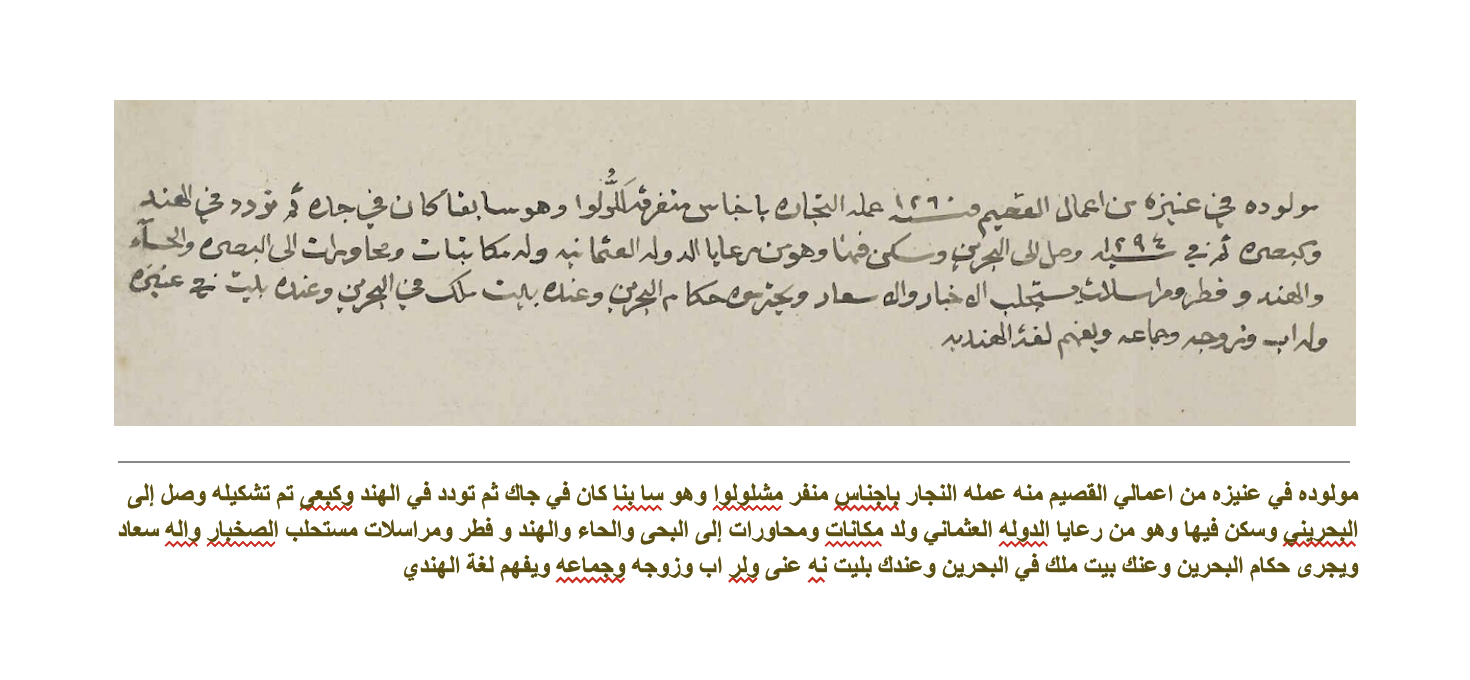 مولوده في عنيزه من اعمال القصيم في سنة ١٢٦٠ عمله التجاره باجناس متفرقة كاللولوا وهو سابقا كان في جاده ثم تودد في الهند
وكبصره ثم في سنة ١٢٩٤ وصل الى البحرين وسكن فيها وهو من رعايا الدوله العثمانيه وله مكاتبات ومحاورات الى البصره والحساء
والهند و قطر ومراسلات يستجلب الاخبار والاسعار ويحترموه حكام البحرين وعنده بيت ملك في البحرين وعنده بيت في عنيزه
وله اب وزوجه وجماعه ويفهم لغة الهنديه
مولوده في عنيزه من اعمالي القصيم منه عمله النجار باجناس منفر مشلولوا وهو سا بنا كان في جاك ثم تودد في الهند وكبعي تم تشكيله وصل إلى
البحريني وسكن فيها وهو من رعايا الدوله العثماني ولد مكانات ومحاورات إلى البحى والحاء والهند و فطر ومراسلات مستحلب الصخبار واله سعاد
ويجرى حكام البحرين وعنك بيت ملك في البحرين وعندك بليت نه عنى ولر اب وزوجه وجماعه ويفهم لغة الهندي